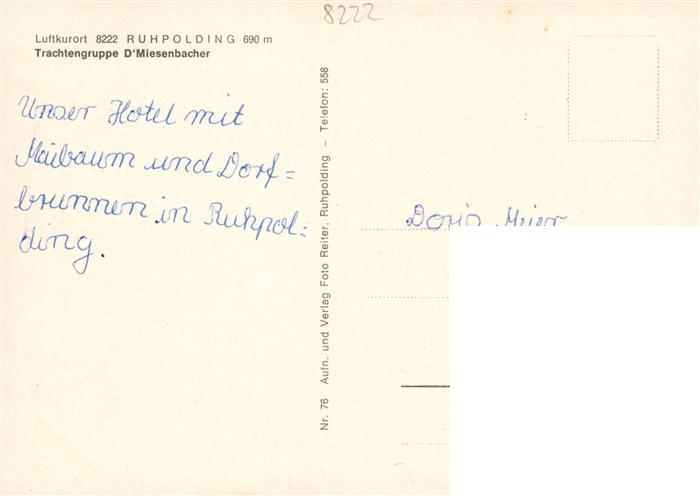 8222
Luftkurort 8222 RUHPOLDING 690 m
Trachtengruppe D'Miesenbacher
Unser Hotel mit
Maibaum und Dorf=
brunnen in Ruhpol=
ding.
Nr. 76 Aufn. und Verlag Foto Reiter, Ruhpolding – Telefon: 558
Doris Meier